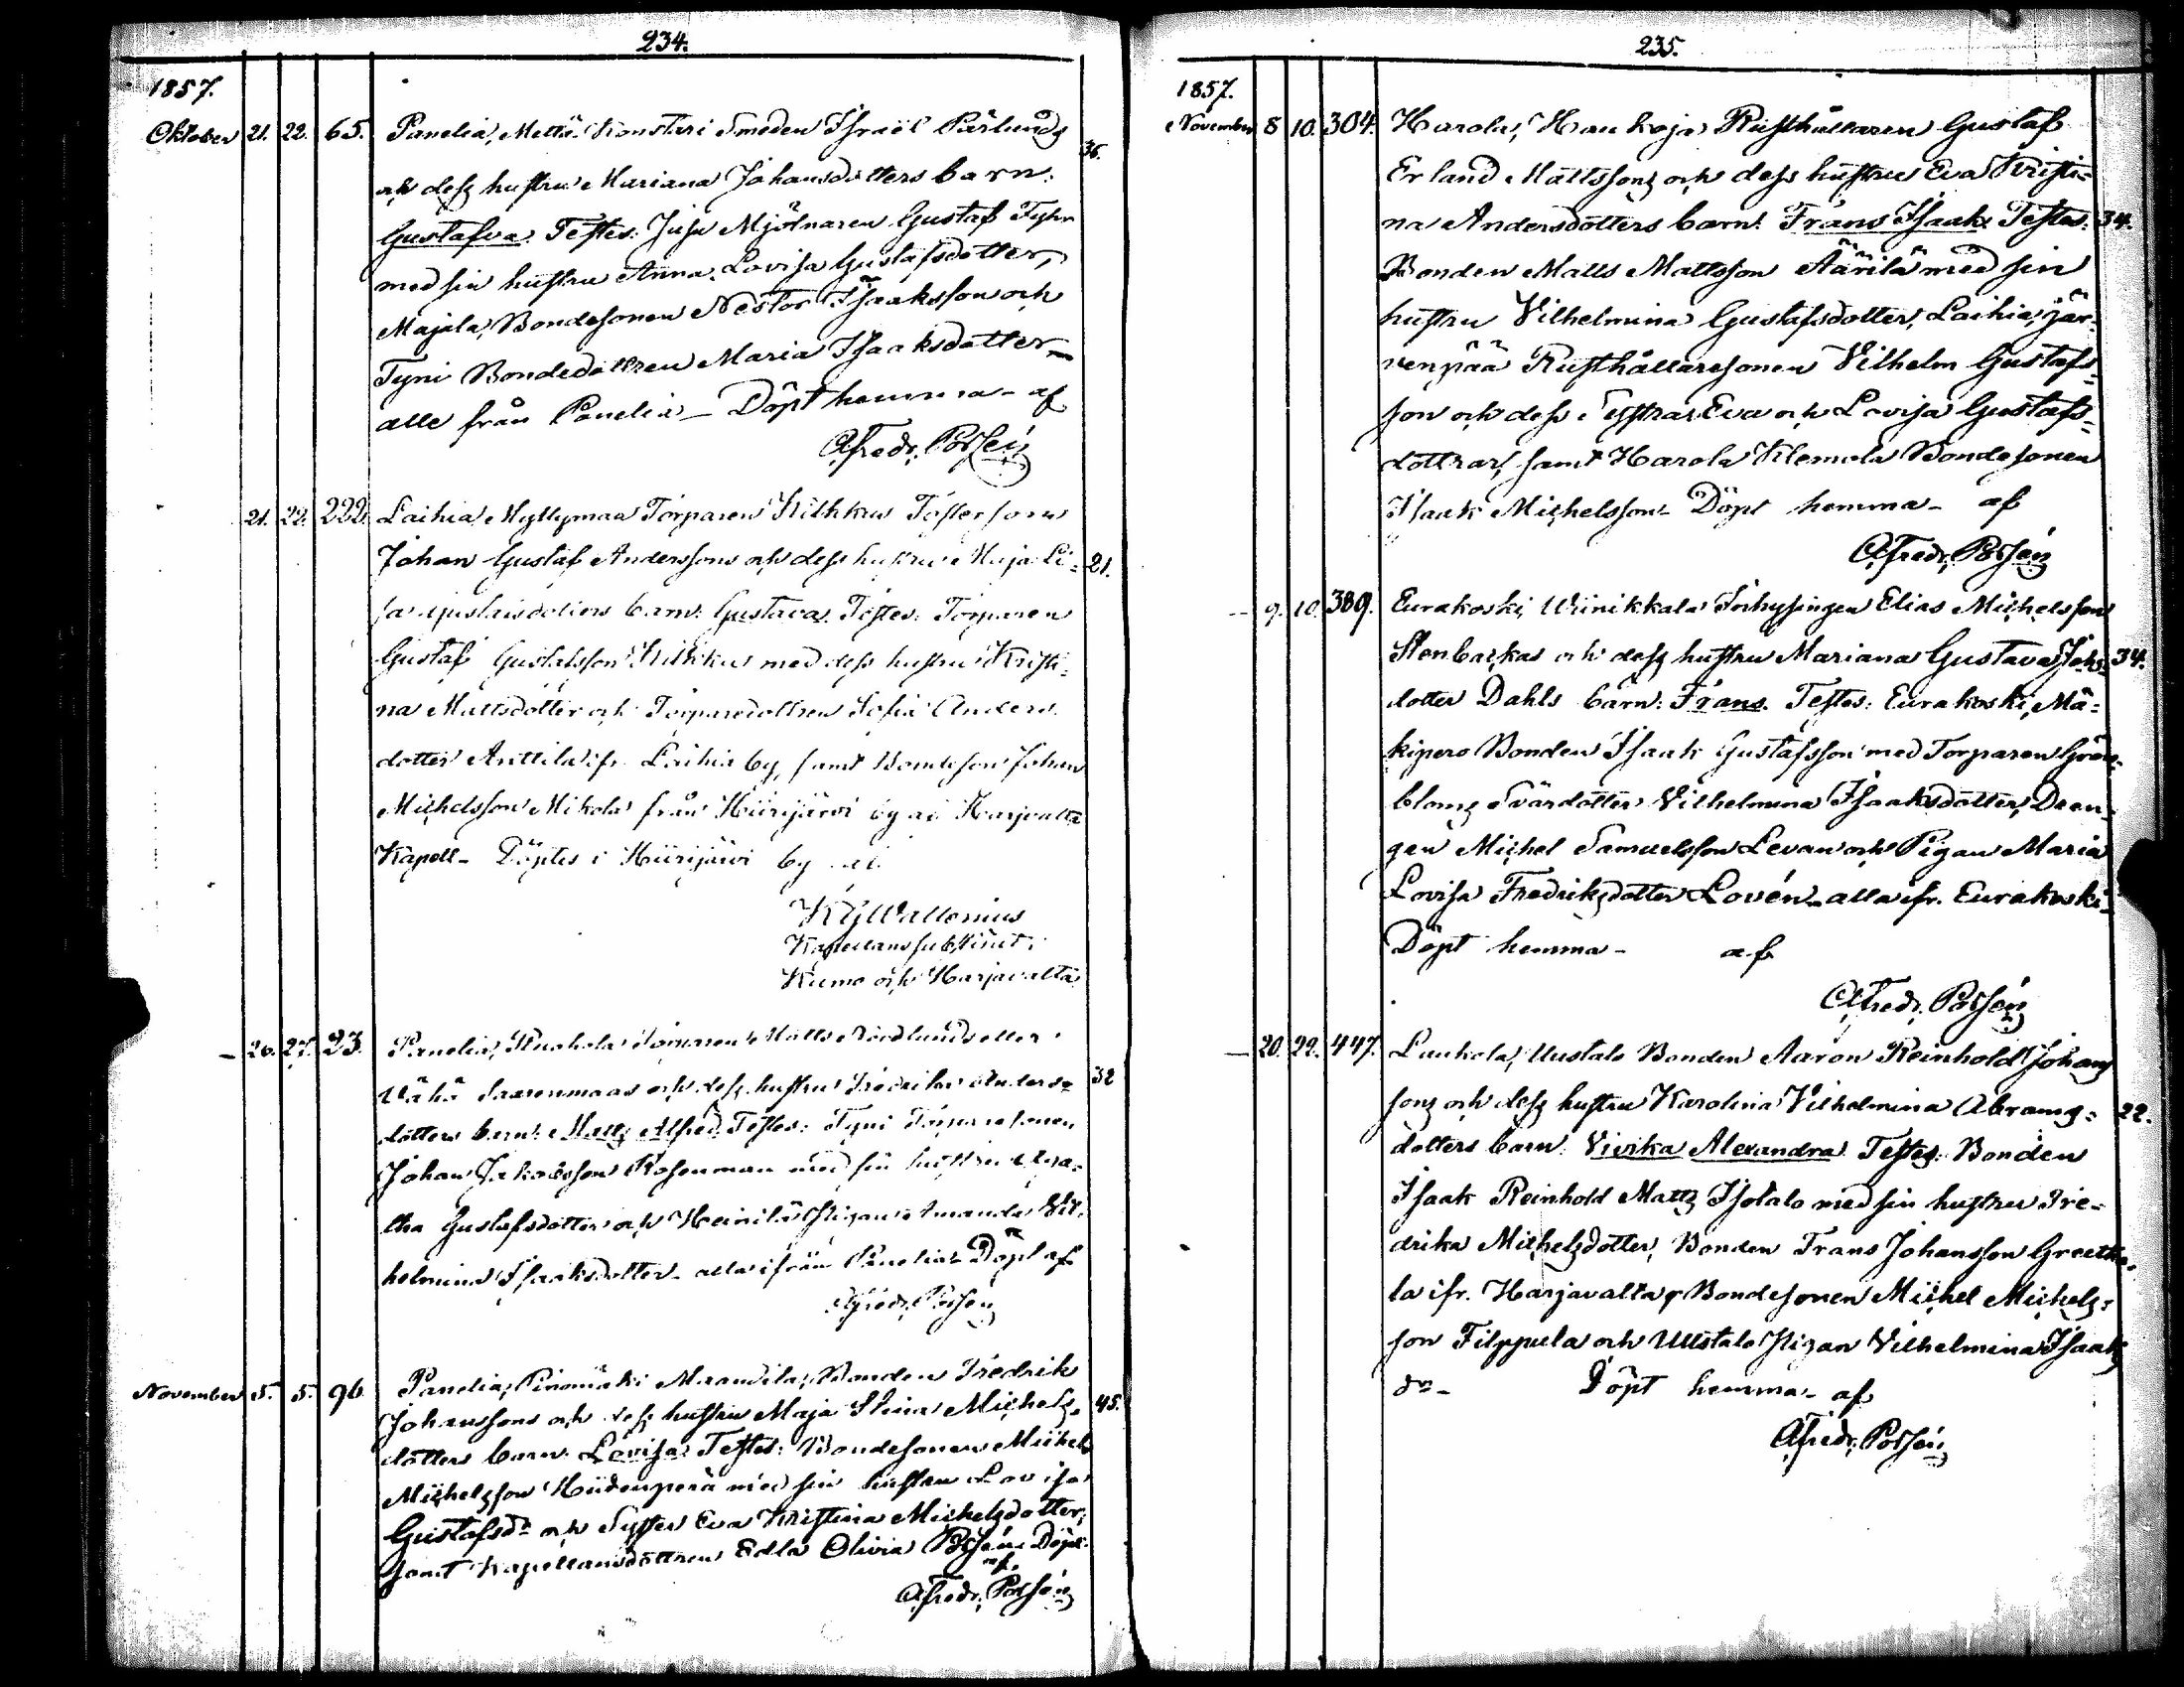 234.
1857.
Oktober 21. 22. 65. Panelia, Mettä-Konstari Smeden Israël Pärlunds
och dess hustru Mariana Johansdotters barn: 36.
Gustafva. Testes: Juse Mjölnaren Gustaf Fyhr
med sin hustru Anna Lovisa Gustafsdotter,
Majala, Bondesonen Nestor Isaaksson och
Tyni Bondedottren Maria Isaaksdotter
alle från Panelia – Döpt hemma – af
Alfredr. Polsén
21. 22. 222. Laihia Myllymaa Torparen Kithkus
Johan Gustaf Anderssons och dess hustru Maja Li- 21.
sa Gustafsdotters barn: Gustava. Testes: Torparen
Gustaf Gustafsson Kithkus med dess hustru Kristi-
na Mattsdotter och Torparedottren Sofia Anders-
dotter Anttila ifr. Laihia by, samt Bondeson Johan
Michelsson Mikola från Hiirijärvi by af Harjavalta
Kapell – Döptes i Hiirijärvi by af
K G Wallenius
Kapellans substitut i
Kumo och Harjavalta
– 26. 27. 23. Panelia, Matts Nordlunds eller
Vähä Saarenmaas och dess hustru Fredrika Anders- 32
dotters barn: Matts Alfred. Testes: Tyni Torparesonen
Johan Jakobsson Rosenman med sin hustru Aga-
tha Gustafsdotter och Heinilä Pigan Amanda Vil-
helmina Isaaksdotter – alla ifrån Panelia – Döpt af
Alfredr. Polsén
November 5. 5. 96. Panelia, Pinomäki Marandila, Bonden Fredrik
Johanssons och dess hustru Maja Stina Michels- 45.
dotters barn: Lovisa. Testes: Bondesonen Michel
Michelsson Hiidenperä med sin hustru Lovisa
Gustafsdr och Syster Eva Kristina Michelsdotter,
samt Kapellansdottren Edla Olivia Polsén. Döpt
af
Alfredr. Polsén
235.
1857.
November 8 10. 304. Harola, Haukoja Rusthållaren Gustaf
Erland Mattssons och dess hustru Eva Kristi-
na Andersdotters barn: Frans Isaak. Testes: 34.
Bonden Matts Mattsson Äärilä med sin
hustru Vilhelmina Gustafsdotter, Laihia, Jär-
venpää Rusthållaresonen Vilhelm Gustafs-
son och dess Systrar Eva och Lovisa Gustafs-
dottrar, samt Harola Klemola Bondesonen
Isaak Michelsson – Döpt hemma – af
Alfredr. Polsén
– 9. 10. 389. Eurakoski, Wiinikkala Inhysingen Elias Michelsson
Stenbackas och dess hustru Mariana Gustava Johs- 34.
dotter Dahls barn: Frans. Testes: Eurakoski, Mä-
kipero Bonden Isaak Gustafsson med Torparen Grön-
bloms Svärdotter Vilhelmina Isaaksdotter, Dren-
gen Michel Samuelsson Levan och Pigan Maria
Lovisa Fredriksdotter Lovén – alla ifr. Eurakoski –
Döpt hemma – af
Alfredr. Polsén
– 20. 22. 447. Laukola, Uustalo Bonden Aaron Reinhold Johans
sons och dess hustru Karolina Vilhelmina Abrams- 22.
dotters barn: Vivika Alexandra. Testes: Bonden
Isaak Reinhold Matts Isotalo med sin hustru Fre-
drika Michelsdotter, Bonden Frans Johansson Greetta-
la ifr. Harjavalta, Bondesonen Michel Michels-
son Filppula och Uustalo Pigan Vilhelmina Isaaks
dr – Döpt hemma – af
Alfredr. Polsén